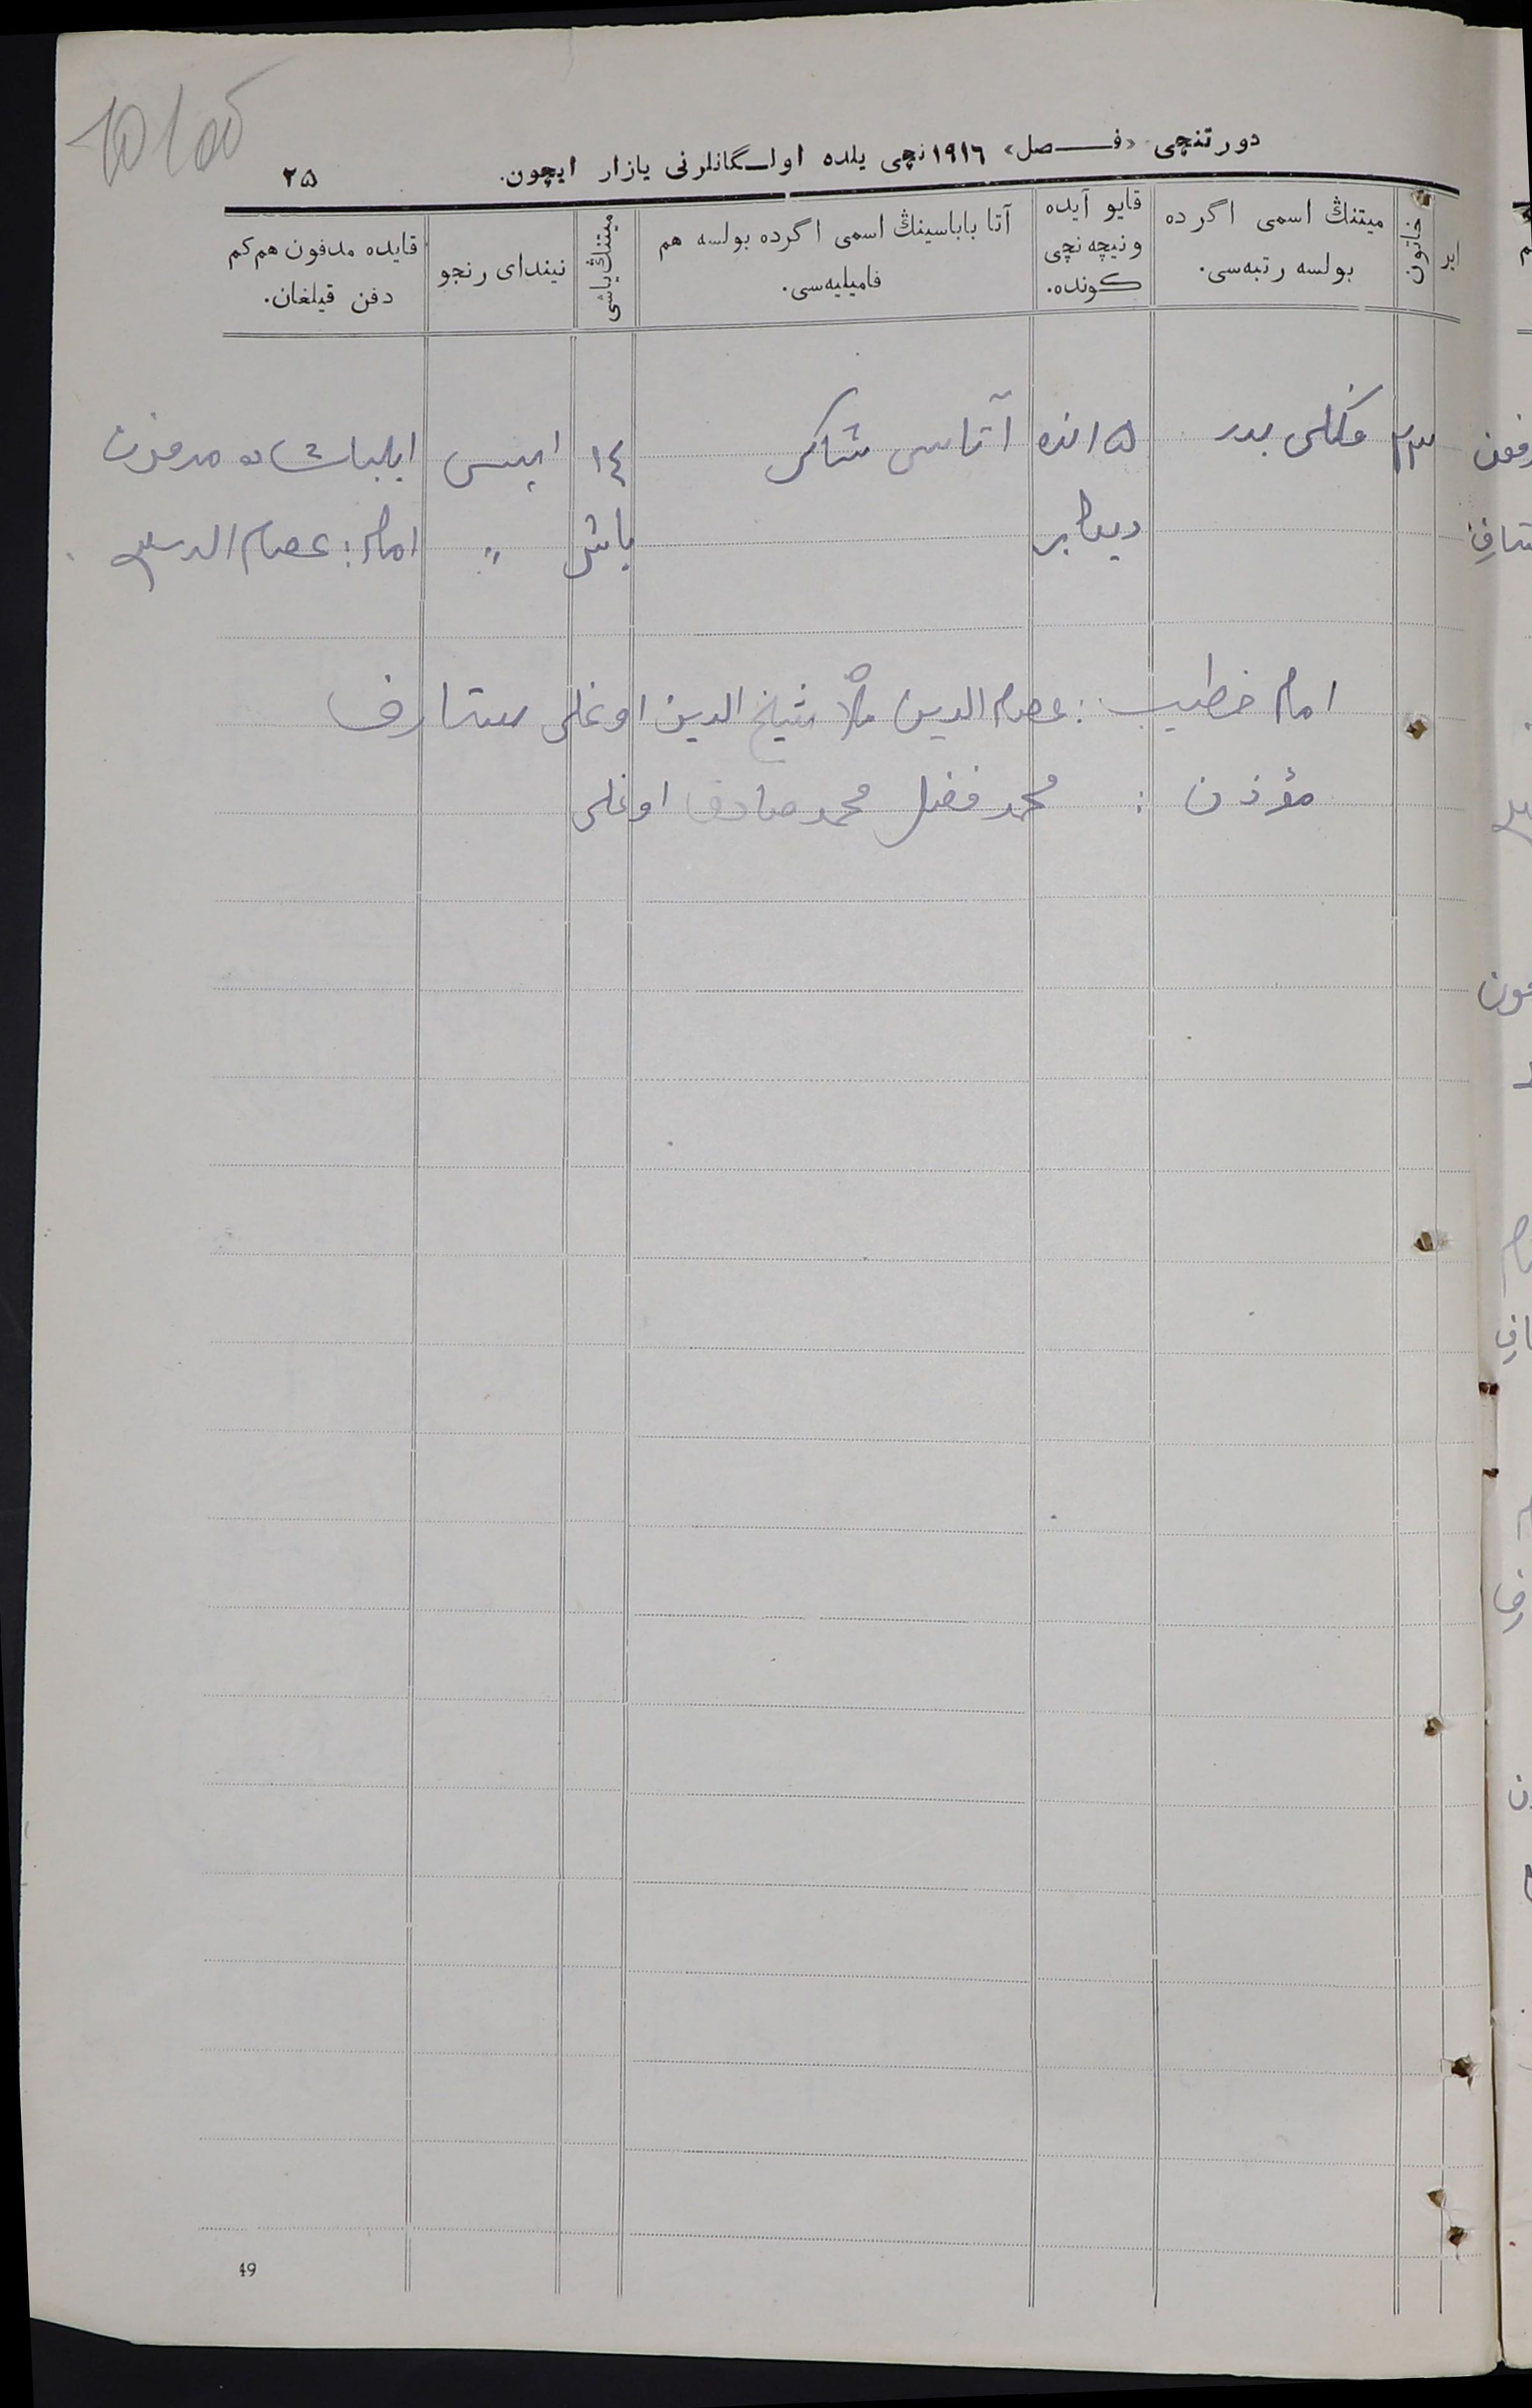 دورتنچی «فـــصل» ١٩١٦نچی یلده اولـگانلرنی یازار ایچون. ٢٥
ایر
خاتون
میتنڭ اسمی اگرده بولسه رتبه‌سی.
قایو آیده ونیچه نچی کونده.
آتا باباسینڭ اسمی اگرده بولسه هم فامیلیه‌سی.
میتنڭ یاشی
نیندای رنجو
قایده مدفون هم کم دفن قیلغان.
٢٣ بدر ١٥ انده آتاسی شاکر ١٤ مدفون
دیکابر یاش " امام: عصام الدین
امام خطیب: عصام الدین ملا شیخ الدین اوغلی ستارف
مؤذن: محمد فضل محمد صادق اوغلی
49